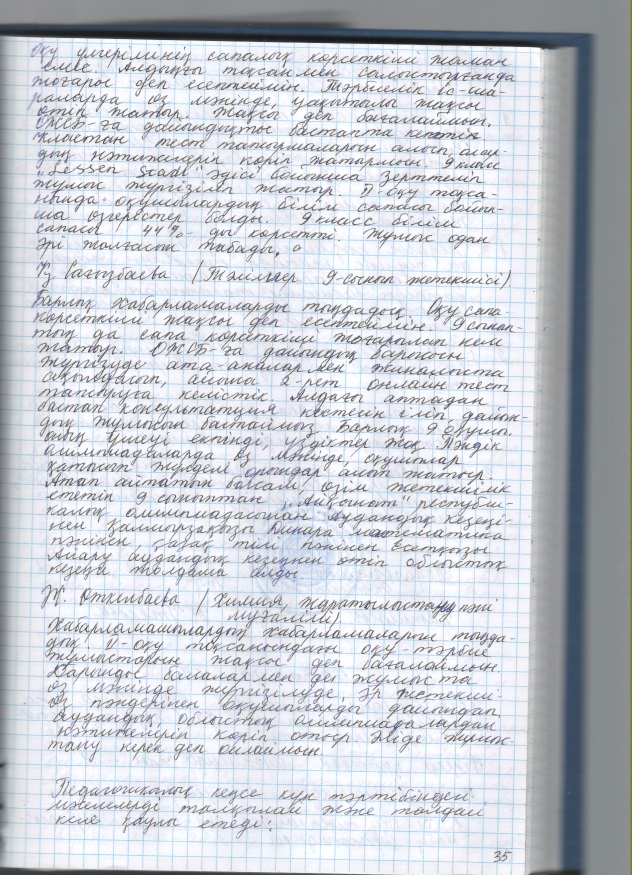 Оқу үлгерімінің сапалық көрсеткіші жаман
емес. Алдыңғы тоқсанмен салыстырғанда
жоғары деп есептеймін. Тәрбиелік іс-ша-
раларда өз мәнінде, уақытылы жақсы
өтіп жатыр. Жақсы деп бағалаймын.
ОЖСБ-ға дайындықты бастапта кеттік
кластан тест тапсырмаларын алып, алар-
дың нәтижелерін көріп жатырмын. 9 класс
"Lesson Stadi" әдісі бойынша зерттелім
жұмыс жүргізіліп жатыр. II-оқу тоқса-
нында оқушылардың білім сапасы бойын-
ша өзгерістер болды. 9 класс білім
сапасы 44% -ды көрсетті. Жұмыс одан
әрі жалғасын табады.
Ұ. Сағызбаева (Тәлімгер 9-сынып жетекшісі)
Барлық хабарламаларды тыңдадық. Оқу сапа-
көрсеткіші жақсы деп есептеймін. 9 сынып-
тың да сапа көрсеткіші жоғарылап келе
жатыр. ОЖСБ-ға дайындық барысын
жүргізуде ата-аналармен жиналыста
ақылдасып, айына 2-рет онлайн тест
тапсыруға келістік. Алдағы аптадан
бастап консультация кестесін іліп, дайын-
дық жұмысын бастаймыз. Барлық 9 оқушы.
оның үшеуі екпінді, үздіктер жоқ. Пәндік
олимпиадаларда өз мәнінде, оқушылар
қатысып жүлделі орындар алып жатыр.
Атап айтатын болсам, өзім жетекшілік
ететін 9 сыныптан "Ақбота" республи-
калық олимпиадасынан аудандық кезеңі-
нен Қалмырзақызы Динара математика
пәнінен қазақ тілі пәнінен Есетқызы
Айару аудандық кезеңнен өтіп облыстық
кезеңге жолдама алды.
Ж. Өткелбаева (Химия, жаратылыстану пәні
мұғалімі)
Хабарламашылардың хабарламаларын тыңда-
дық. II-оқу тоқсанындағы оқу-тәрбие
жұмыстарын жақсы деп бағалаймын.
Дарынды балалармен де жұмыста
өз мәнінде жүргізілуде. Әр жетекші-
өз пәндерінен оқушыларды дайындап
аудандық, облыстық олимпиадалардан
нәтижелерін көріп отыр. Әліде жұмыс-
тану керек деп ойлаймын
Педагогикалық кеңес күн тәртібіндегі
мәселелерді талқылай және талдай
келе қаулы етеді:
35